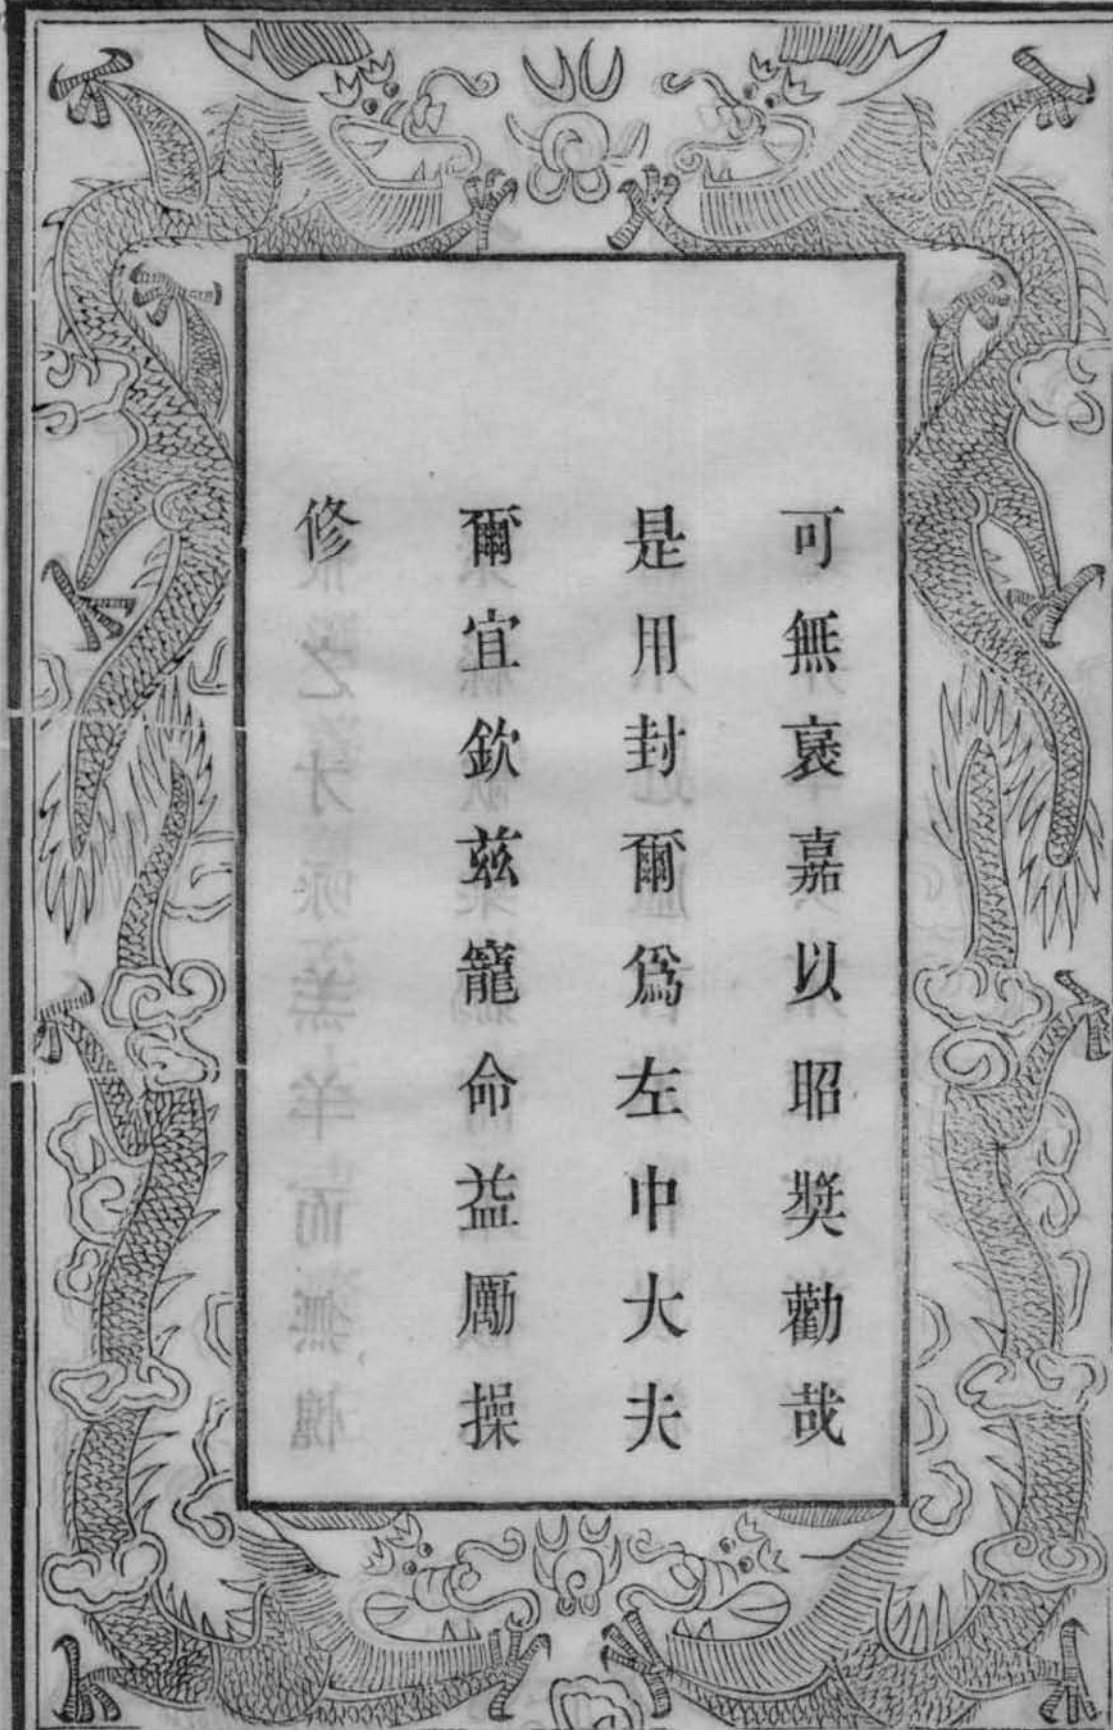 可無裦嘉以昭奬勸哉
是用封爾爲左中大夫
爾宜欽兹寵命益勵操
修